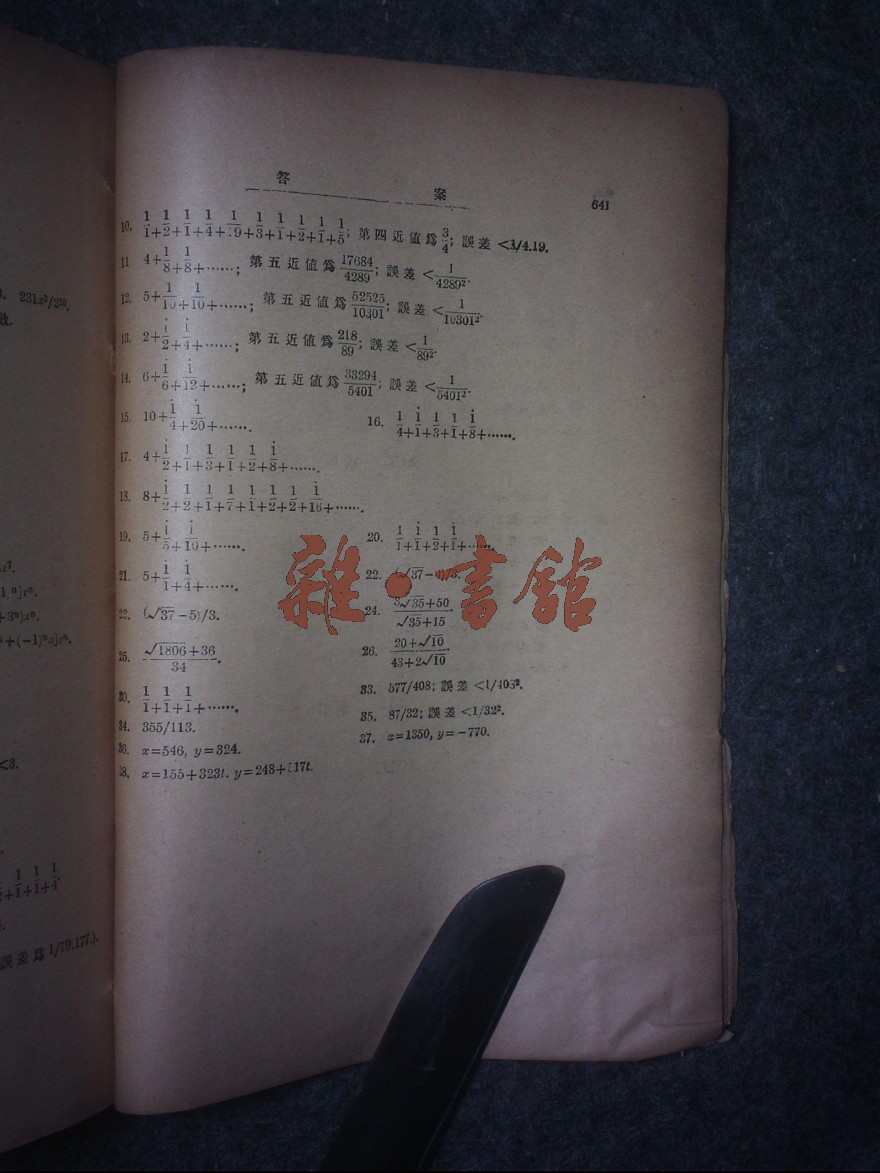 答 案 641
10. 1/1+ 1/2+ 1/1+ 1/4+ 1/19+ 1/3+ 1/1+ 1/2+ 1/1+ 1/5; 第四近值爲 3/4; 誤差 <1/4.19.
11 4+ 1/8+ 1/8+……; 第五近值爲 17684/4289; 誤差 < 1/4289².
12. 5+ 1/10+ 1/10+……; 第五近值爲 52525/10301; 誤差 < 1/10301².
13. 2+ 1/2+ 1/4+……; 第五近值爲 218/89; 誤差 < 1/89².
14. 6+ 1/6+ 1/12+……; 第五近值爲 33294/5401; 誤差 < 1/5401².
15. 10+ 1/4+ 1/20+……. 16. 1/4+ 1/1+ 1/3+ 1/1+ 1/8+…….
17. 4+ 1/2+ 1/1+ 1/3+ 1/1+ 1/2+ 1/8+…….
18. 8+ 1/2+ 1/2+ 1/1+ 1/7+ 1/1+ 1/2+ 1/2+ 1/16+…….
19. 5+ 1/5+ 1/10+……. 20. 1/1+ 1/1+ 1/2+ 1/1+…….
21. 5+ 1/1+ 1/4+……. 22. (√37−
23. (√37−5)/3. 24. (3√35+50)/(√35+15).
25. (√1806+36)/34. 26. (20+√10)/(43+2√10).
30. 1/1+ 1/1+ 1/1+……. 33. 577/408; 誤差 <1/408².
34. 355/113. 35. 87/32; 誤差 <1/32².
36. x=546, y=324. 37. x=1350, y=−770.
38. x=155+323t. y=248+517t.
雜·書館
231x²/2
x⁷.
]xⁿ.
+3ⁿ)xⁿ.
+(−1)ⁿ
<3.
+ 1/1+ 1/1+ 1/4.
誤差爲 1/79.177.).